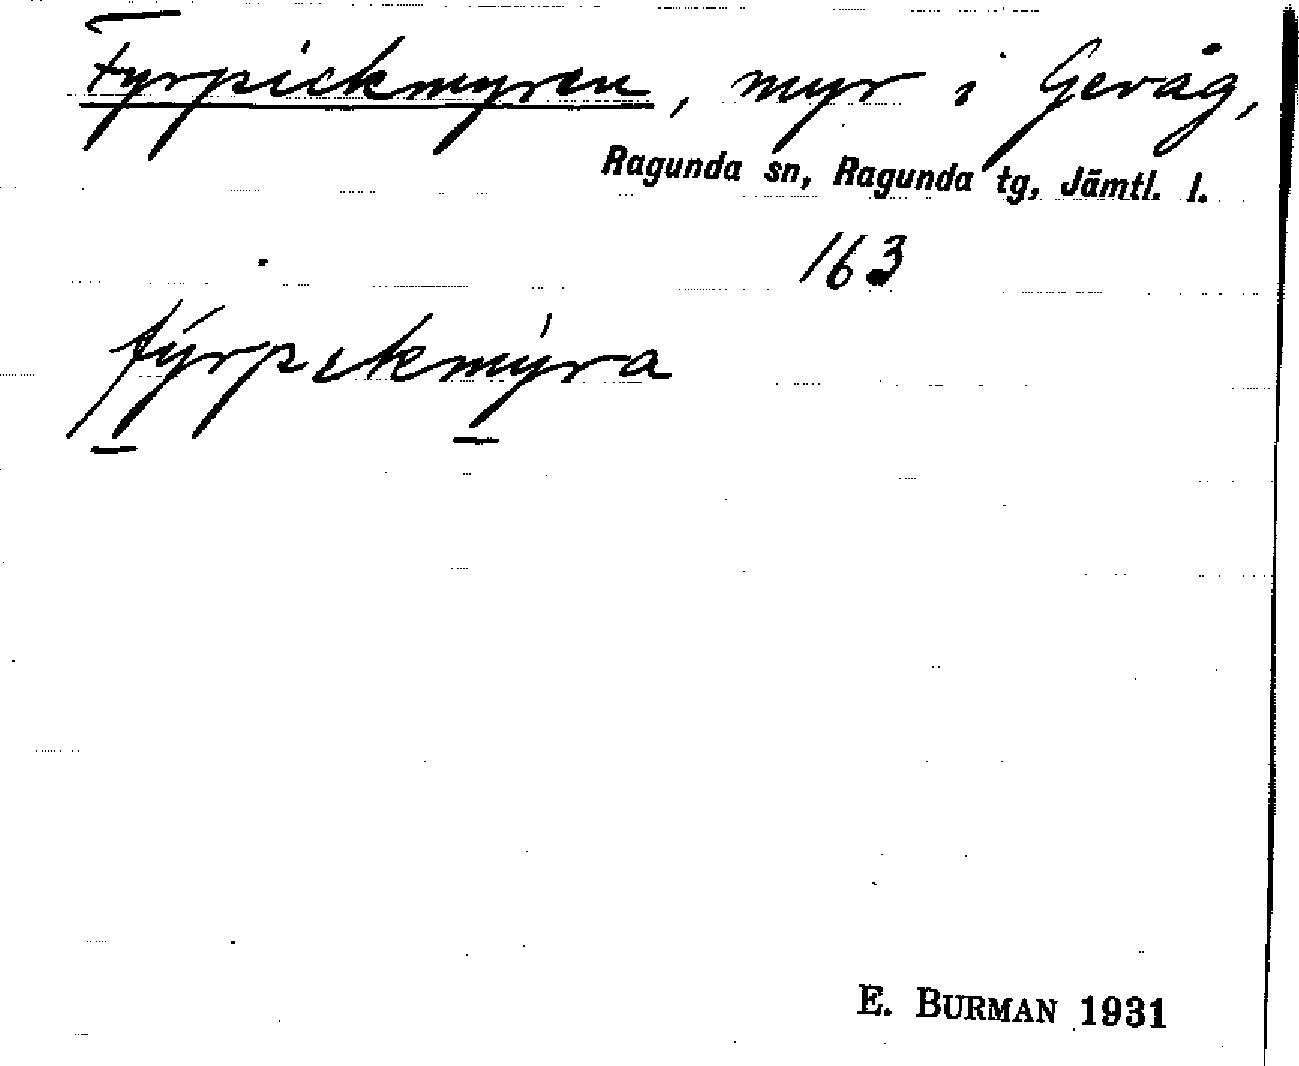 Fyrpickmyren, myr i Gevåg,
Ragunda sn, Ragunda tg, Jämtl. l.
163
fýrpɩkmýra
E. BURMAN 1931